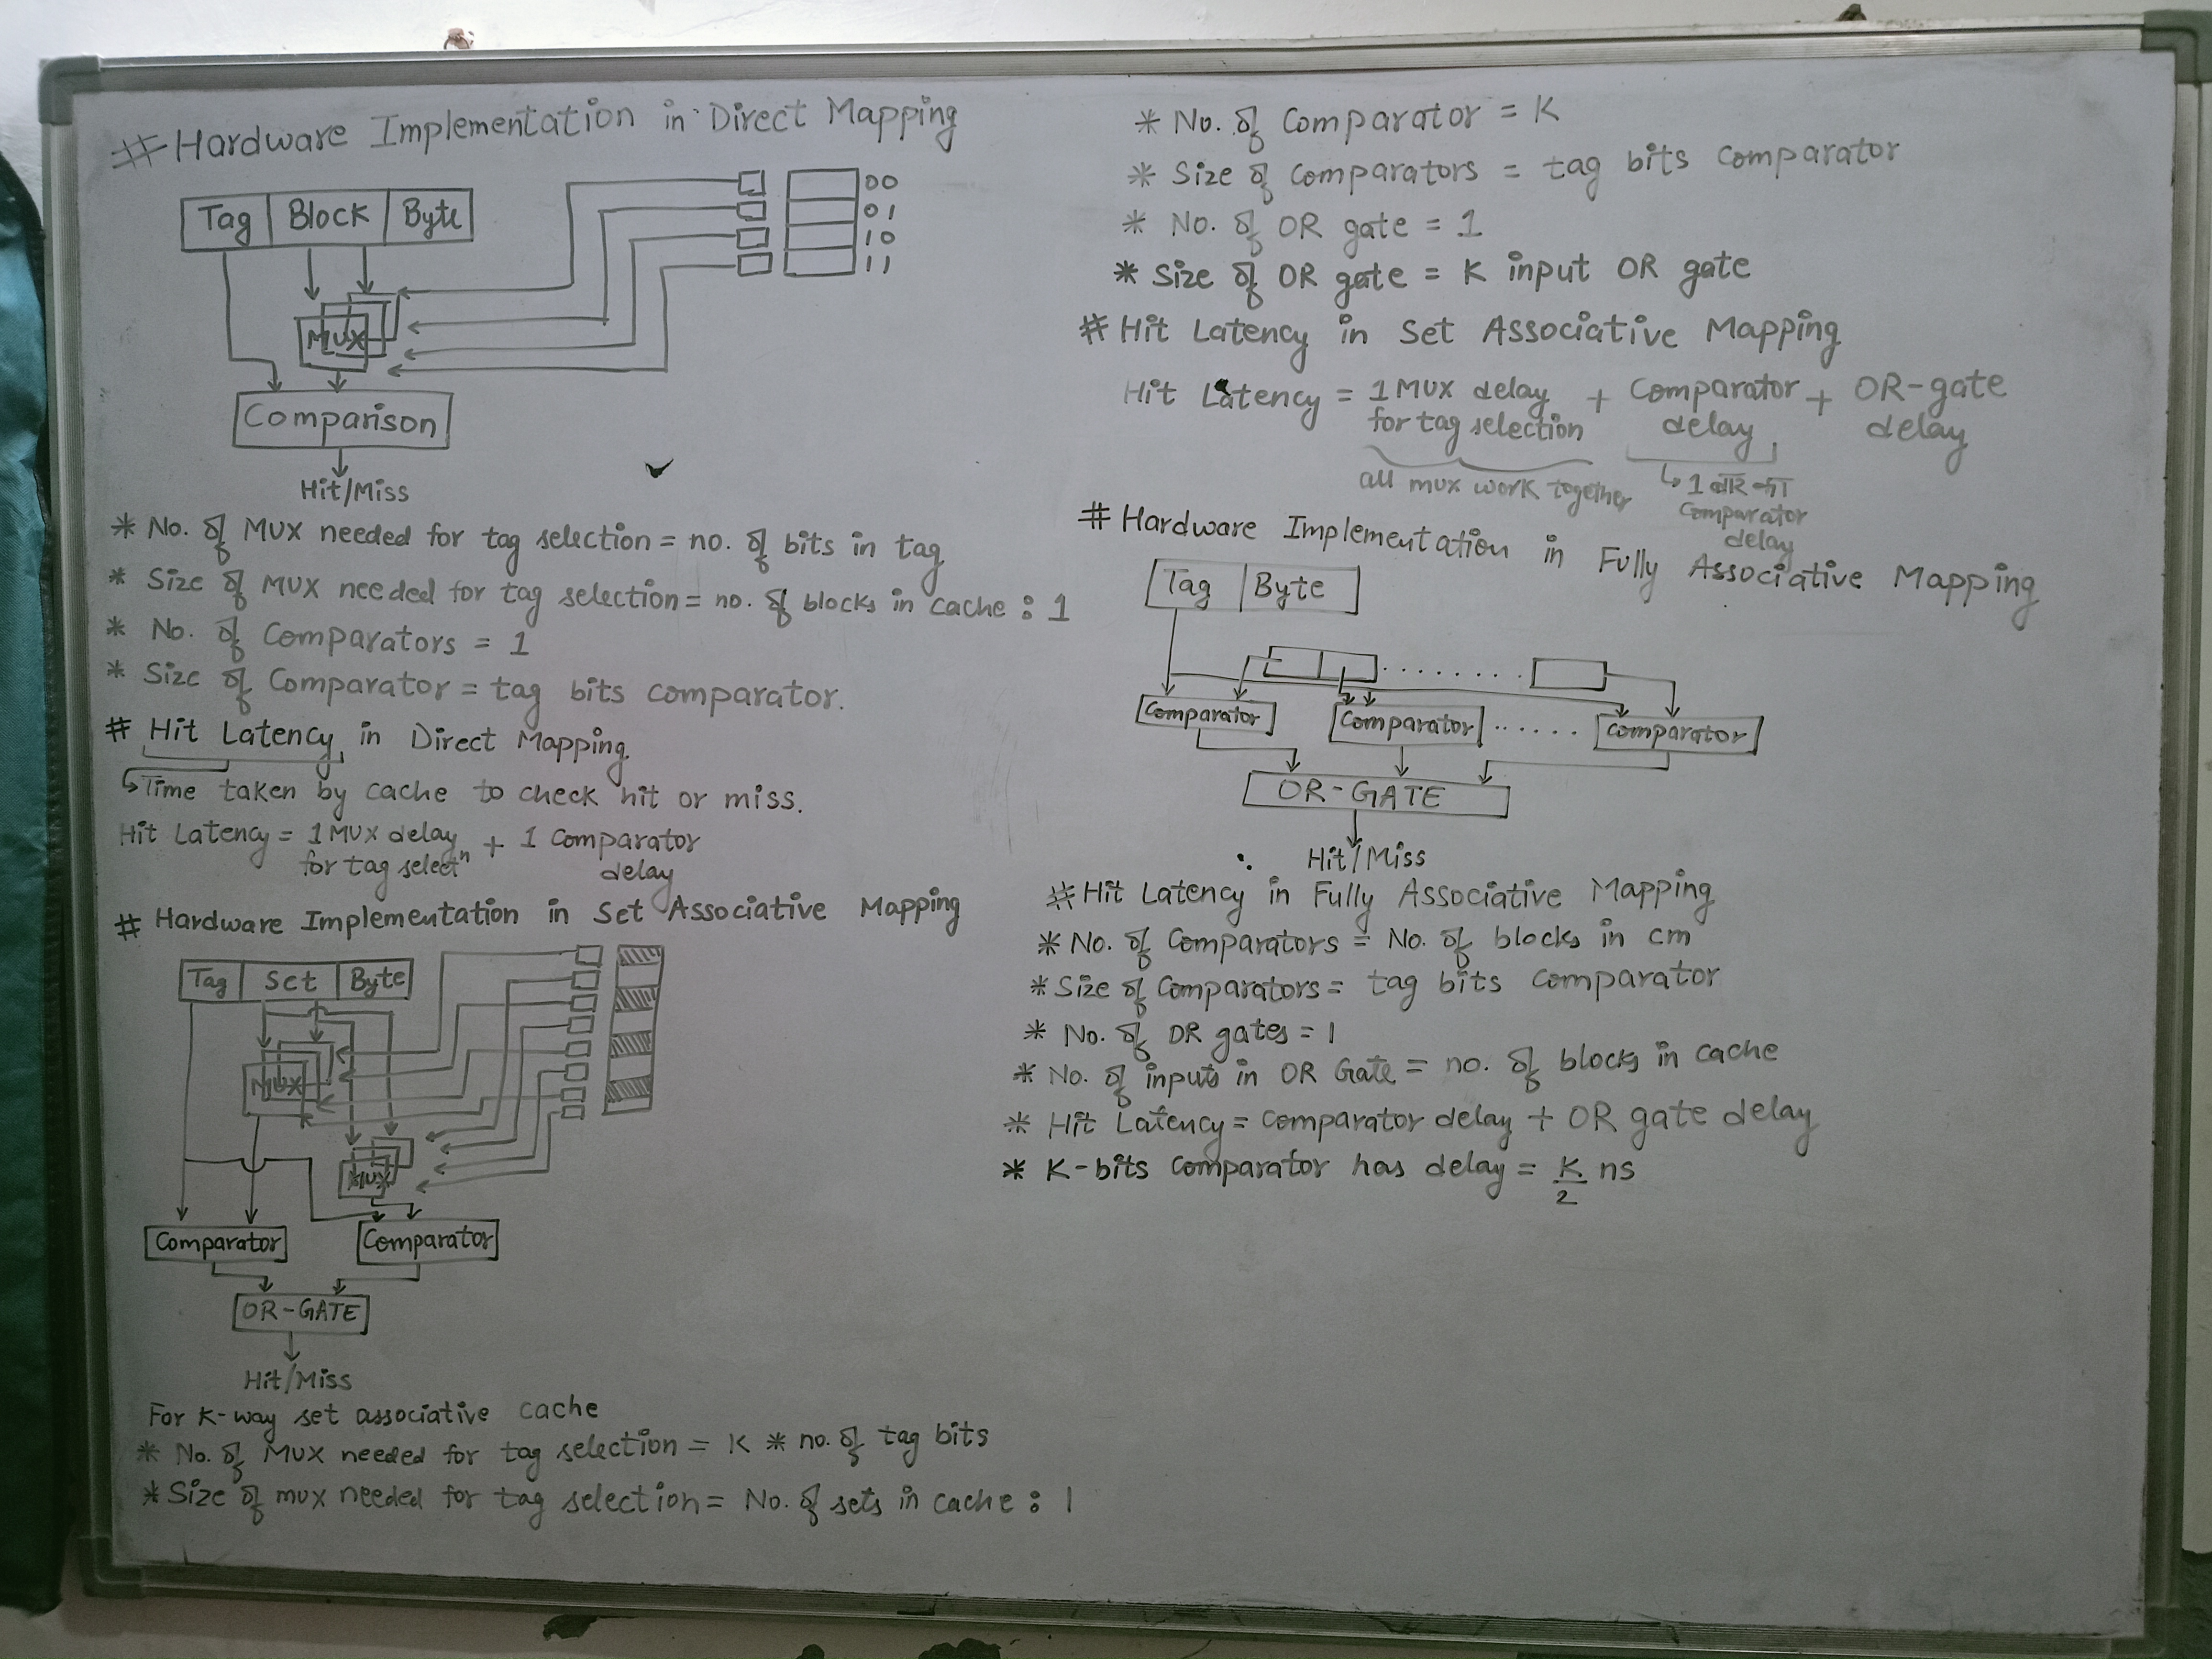 # Hardware Implementation in Direct Mapping
Tag Block Byte
00
01
10
11
MUX
Comparison
Hit/Miss
* No. of MUX needed for tag selection = no. of bits in tag
* Size of MUX needed for tag selection = no. of blocks in cache : 1
* No. of Comparators = 1
* Size of Comparator = tag bits comparator.
# Hit Latency in Direct Mapping
↳ Time taken by cache to check hit or miss.
Hit Latency = 1 MUX delay + 1 Comparator
for tag selectⁿ delay
# Hardware Implementation in Set Associative Mapping
Tag Set Byte
MUX
MUX
Comparator Comparator
OR-GATE
Hit/Miss
For K-way set associative cache
* No. of MUX needed for tag selection = K * no. of tag bits
* Size of mux needed for tag selection = No. of sets in cache : 1
* No. of Comparator = K
* Size of Comparators = tag bits comparator
* No. of OR gate = 1
* Size of OR gate = K input OR gate
# Hit Latency in Set Associative Mapping
Hit Latency = 1 MUX delay + Comparator + OR-gate
for tag selection delay delay
all mux work together ↳ 1 बार का
Comparator
delay
# Hardware Implementation in Fully Associative Mapping
Tag Byte
........
Comparator Comparator ...... Comparator
OR-GATE
Hit/Miss
# Hit Latency in Fully Associative Mapping
* No. of Comparators = No. of blocks in cm
* Size of Comparators = tag bits comparator
* No. of OR gates = 1
* No. of inputs in OR Gate = no. of blocks in cache
* Hit Latency = Comparator delay + OR gate delay
* K-bits Comparator has delay = K/2 ns